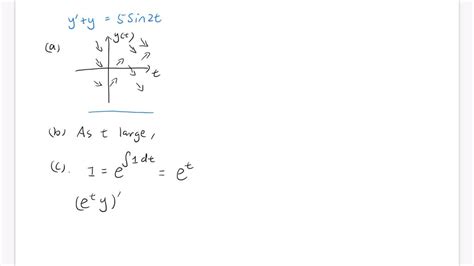 y'+y = 5Sin2t
(a)
y(t)
t
(b) As t large,
(c). I = e^∫1dt = e^t
(e^t y)'